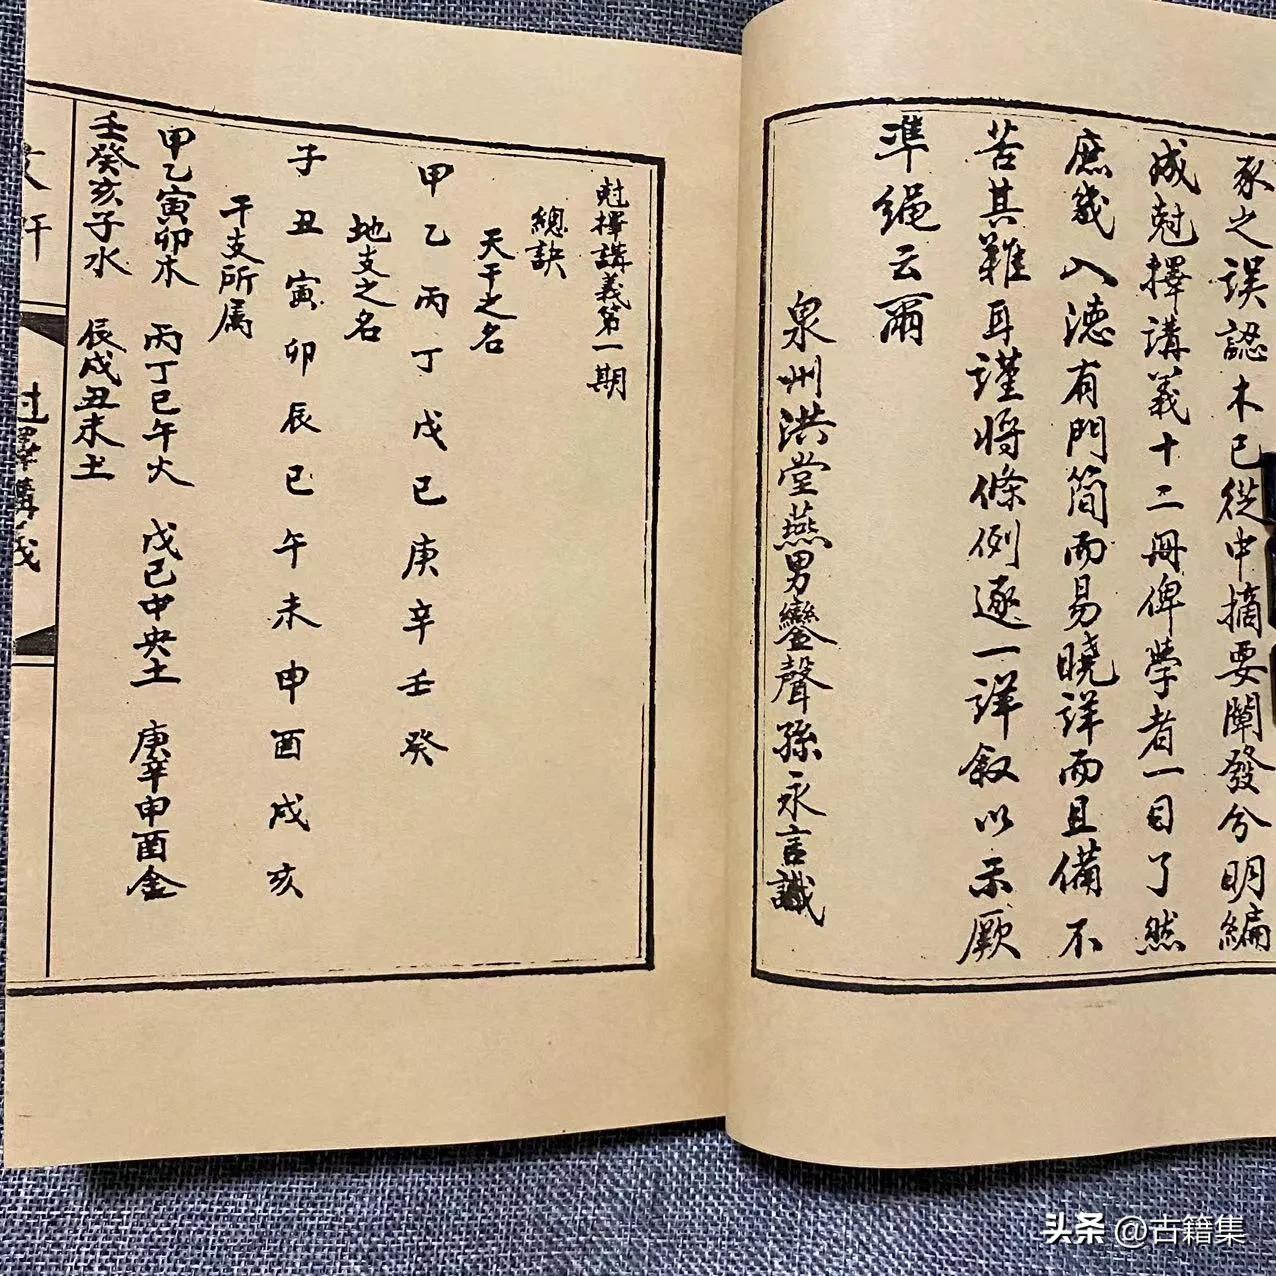 豕之誤認木已從中摘要闡發分明編
成尅擇講義十二冊俾學者一目了然
庶幾入德有門簡而易曉詳而且備不
苦其難耳謹將條例逐一詳敘以示厥
準繩云爾
泉州洪堂燕男鑾聲孫永言識
尅擇講義第一期
總訣
天干之名
甲乙丙丁戊己庚辛壬癸
地支之名
子丑寅卯辰巳午未申酉戌亥
干支所属
甲乙寅卯木 丙丁巳午火 戊己中央土 庚辛申酉金
壬癸亥子水 辰戌丑未土
尅擇講義
头条 @古籍集